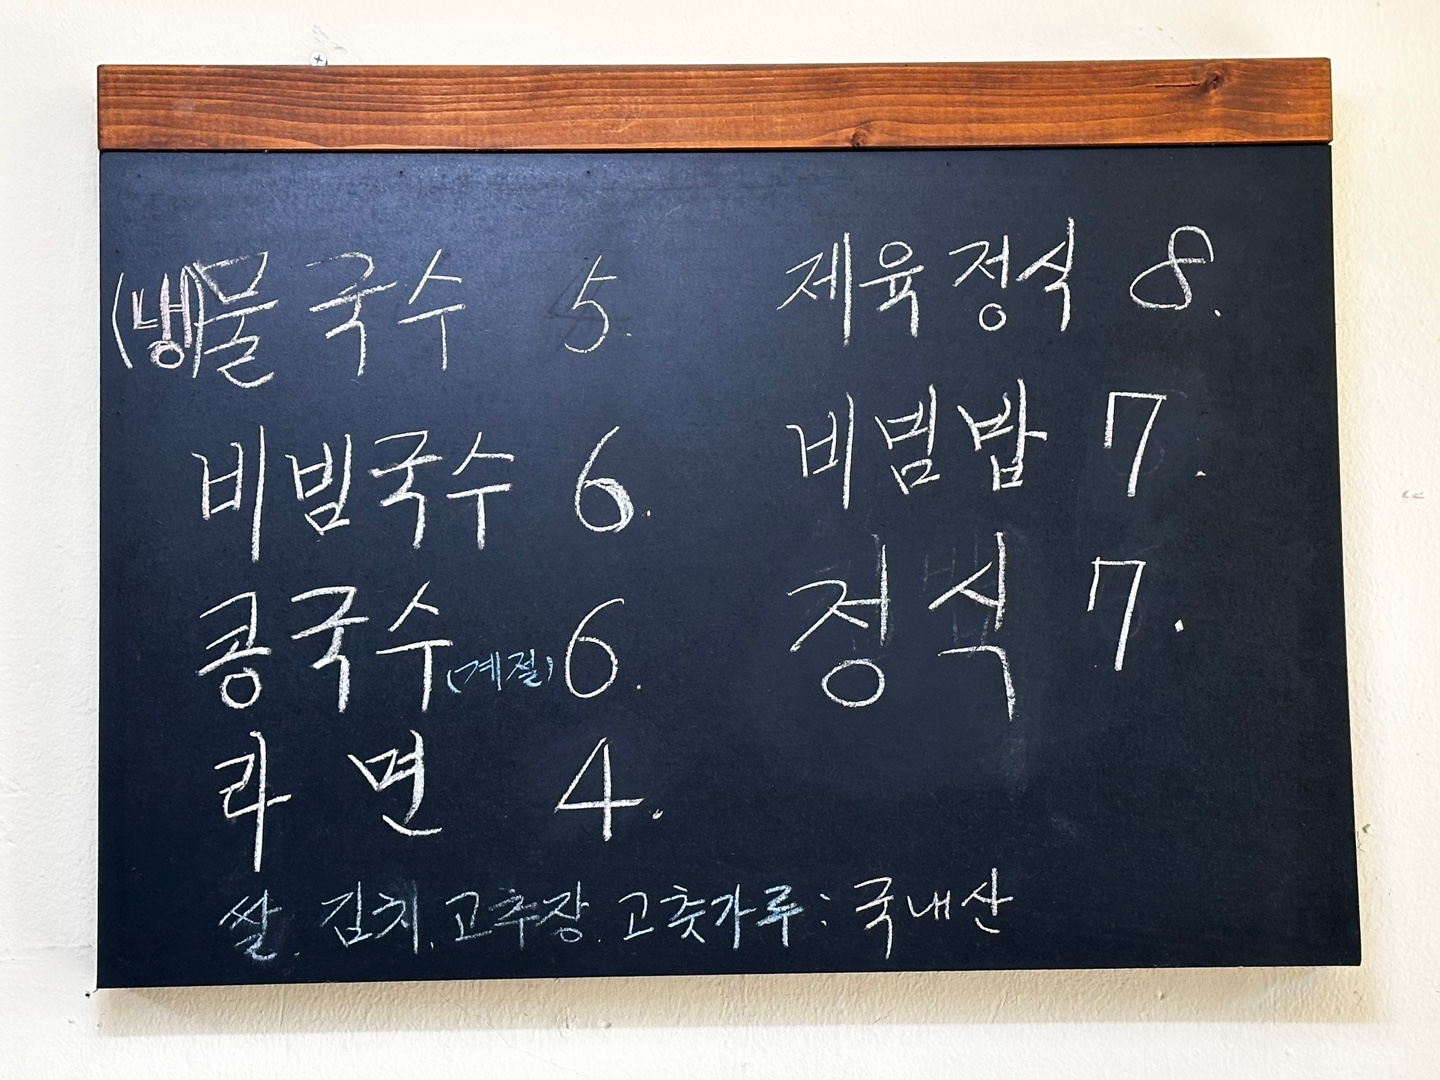 (냉)물국수 5.
비빔국수 6.
콩국수(계절) 6.
라면 4.
제육정식 8.
비빔밥 7.
정식 7.
쌀. 김치. 고추장. 고춧가루: 국내산